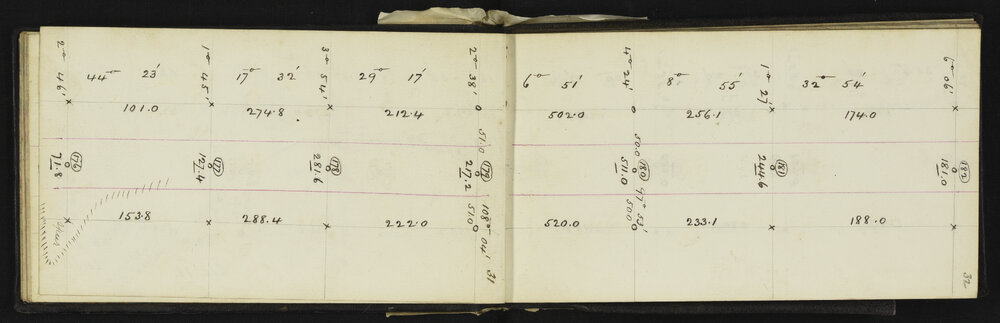 2° 46'
44° 23'
1° 45'
17° 32'
3° 54'
29° 17'
2° 38'
6° 51'
4° 24'
8° 55'
1° 27'
32° 54'
6° 06'
101.0
274.8
212.4
51.0
502.0
50.0
256.1
174.0
176
71.8
177
127.4
178
281.6
179
217.2
180
511.0
181
244.6
182
181.0
153.8
288.4
222.0
51.0
108° 04'
520.0
97° 53'
50.0
233.1
188.0
31
32